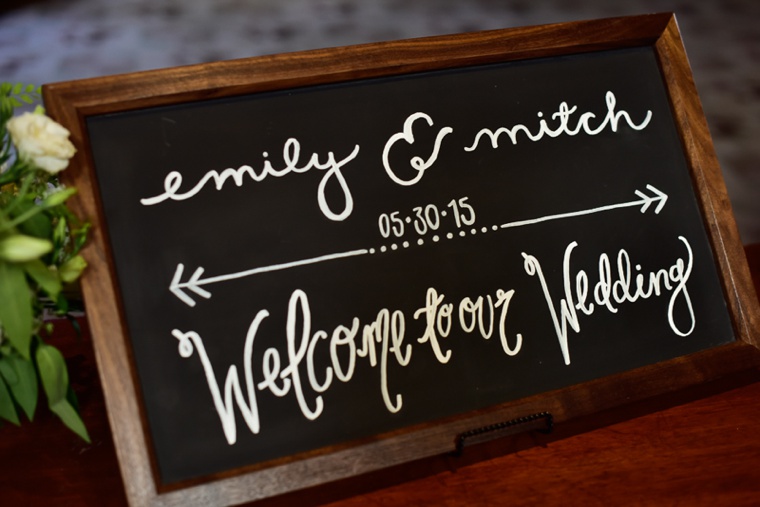 emily & mitch
05·30·15
Welcome to our Wedding